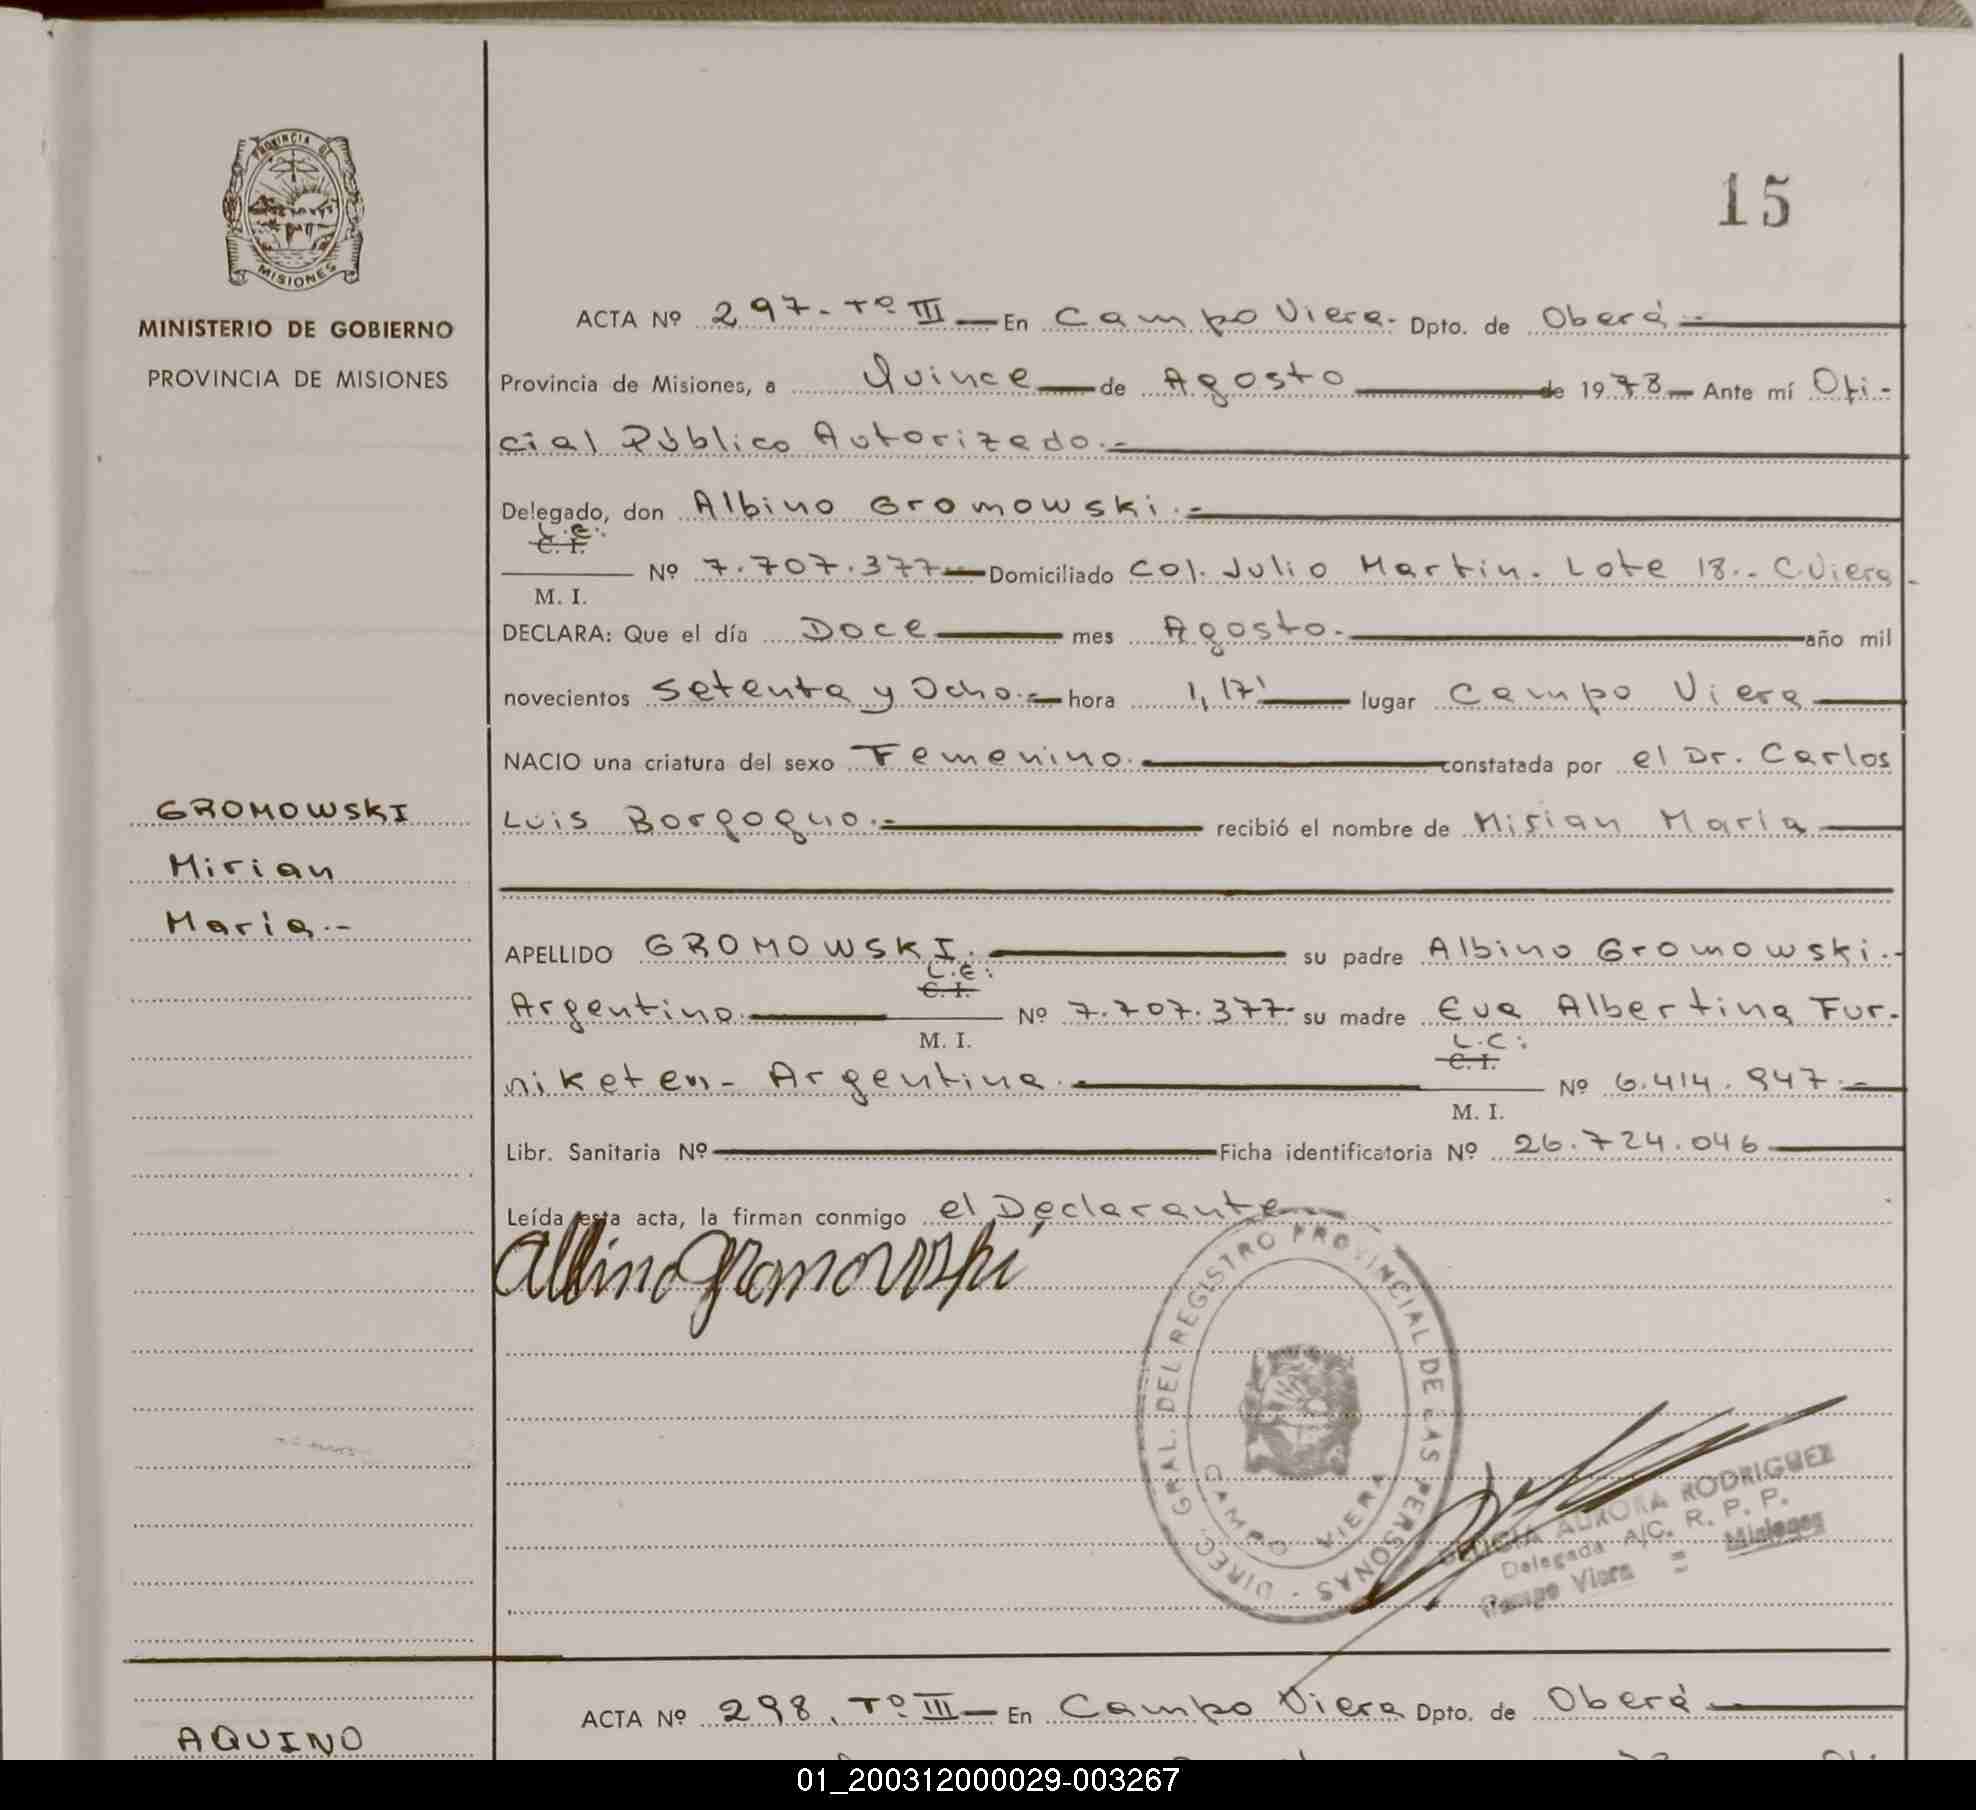 PROVINCIA DE
MISIONES
MINISTERIO DE GOBIERNO
PROVINCIA DE MISIONES
15
ACTA Nº 297.- Tº III — En Campo Viera.- Dpto. de Oberá.-
Provincia de Misiones, a Quince de Agosto de 1978 — Ante mí Ofi-
cial Público Autorizado.-
Delegado, don Albino Gromowski.-
L.E:
C. I.
Nº 7.707.377 Domiciliado Col. Julio Martin. Lote 18.- C.Viera.
M. I.
DECLARA: Que el día Doce mes Agosto.- año mil
novecientos Setenta y Ocho.- hora 1,17' lugar Campo Viera
NACIO una criatura del sexo Femenino.- constatada por el Dr. Carlos
Luis Borgogno.- recibió el nombre de Mirian María
GROMOWSKI
Mirian
María.-
APELLIDO GROMOWSKI.- su padre Albino Gromowski.-
L.E:
C. I.
Argentino.- Nº 7.707.377- su madre Eva Albertina Fur-
M. I.
L.C:
C. I.
niketen- Argentina.- Nº 6.414.947.-
M. I.
Libr. Sanitaria Nº Ficha identificatoria Nº 26.724.046
Leída esta acta, la firman conmigo el Declarante
Albino Gromowski
DIREC. GRAL. DEL REGISTRO PROVINCIAL DE LAS PERSONAS -
CAMPO VIERA
AURORA RODRIGUEZ
Delegada A/C. R. P. P.
Campo Viera = Misiones
ACTA Nº 298. Tº III — En Campo Viera Dpto. de Oberá
AQUINO
01_200312000029-003267